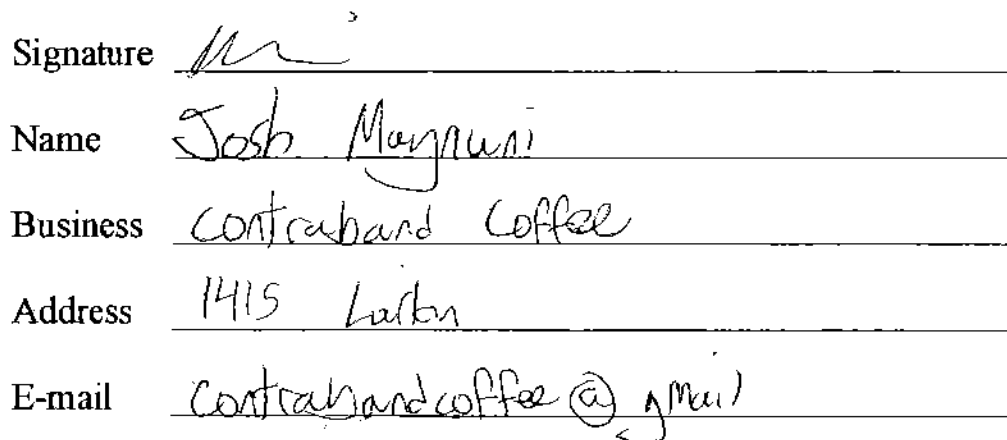 Signature
Name Josh Magnuni
Business Contraband Coffee
Address 1415 Larkin
E-mail Contrabandcoffee@gmail